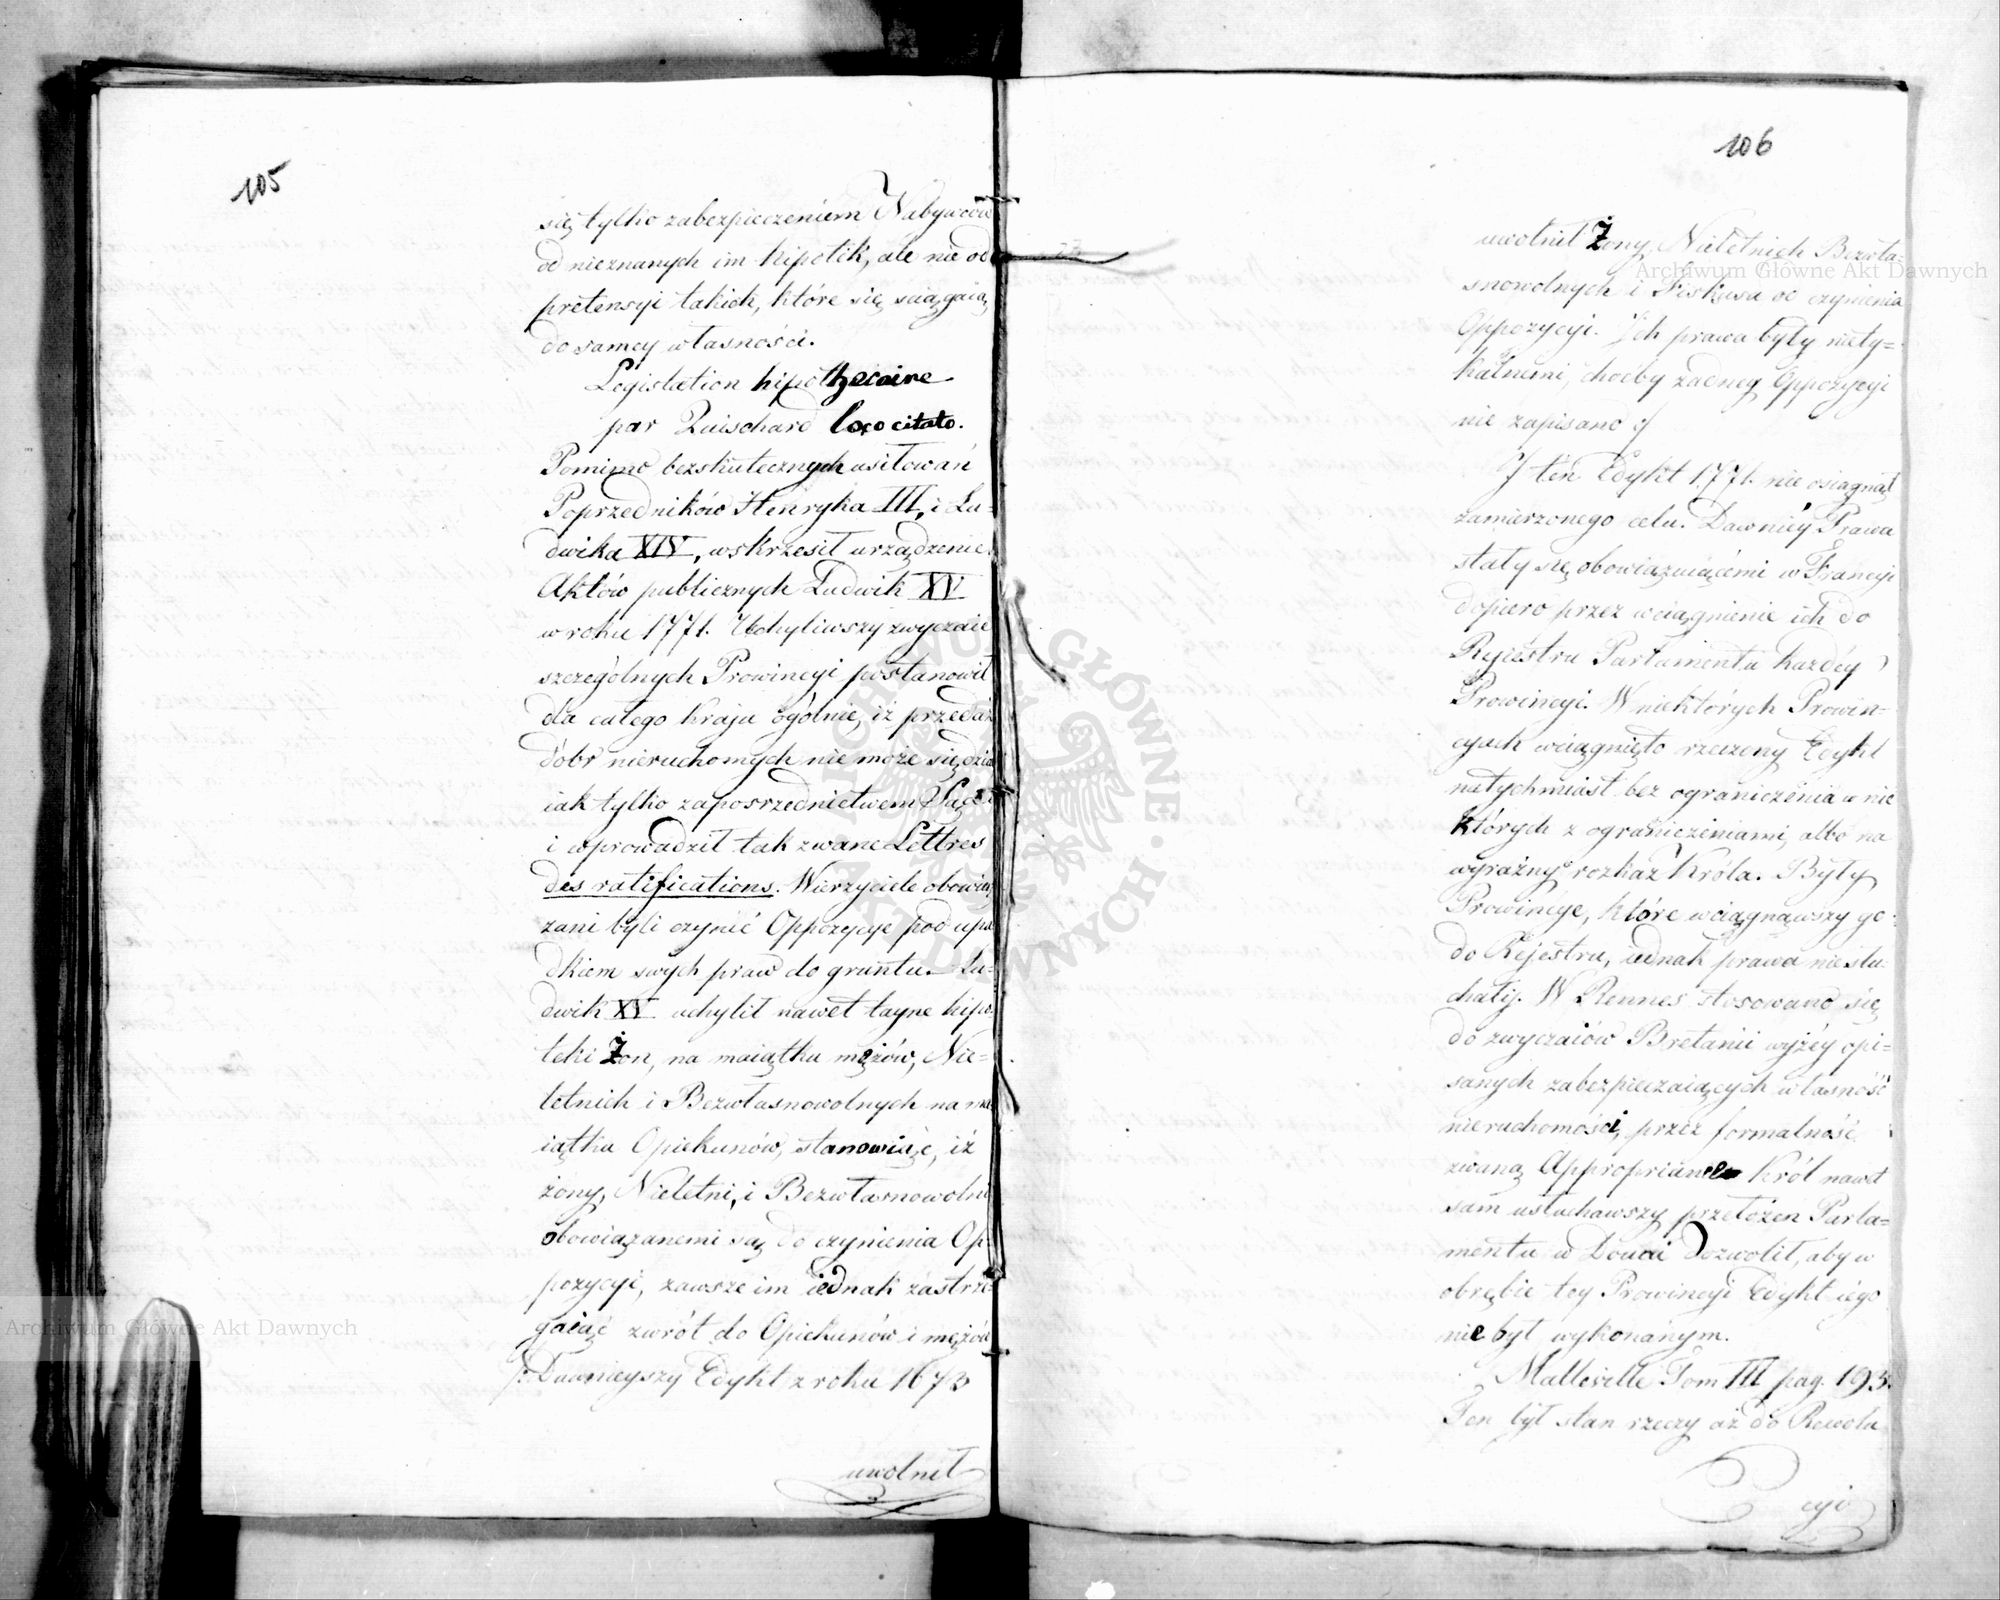 105
się tylko zabezpieczeniem Nabywców
od nieznanych im hipotek, ale nie od
pretensyi takich, które się ściągaią
do samey własności.
Legislation hipothecaire
par Guischard loco citato.
Pomimo bezskutecznych usiłowań
Poprzedników Henryka III, i Lu-
dwika XIV, wskrzesił urządzenie
Aktów publicznych Ludwik XV
w roku 1771. Uchyliwszy zwyczaie
szczególnych Prowincyi postanowił
dla całego Kraju ogólnie, iż przedaż
dóbr nieruchomych nie może się dziać
iak tylko za pośrzednictwem Sądu
i wprowadził tak zwane Lettres
des ratifications. Wierzyciele obowią
zani byli czynić Oppozycye pod upa
dkiem swych praw do gruntu. Lu-
dwik XV uchylił nawet tayne hipo
teki Żon, na maiątku mężów, Nie-
letnich i Bezwłasnowolnych na ma
iątku Opiekunów, stanowiąc, iż
żony, Nieletni, i Bezwłasnowolni
obowiązanemi są do czynienia Op-
pozycyi, zawsze im iednak zastrze
gaiąc zwrót do Opiekunów i mężów
/: Dawnieyszy Edykt z roku 1673
uwolnił
106
uwolnił Żony, Nieletnich Bezwła-
snowolnych i Fiskusa od czynienia
Oppozycyi. Ich prawa były niety-
kalnemi, choćby żadney Oppozycyi
nie zapisano :/
I ten Edykt 1771. nie osiągnął
zamierzonego celu. Dawniéy Prawa
stały się obowiązuiącemi w Francyi
dopiero przez wciągnienie ich do
Rejestru Parlamentu każdéy
Prowincyi. W niektórych Prowin-
cyach wciągnięto rzeczony Edykt
natychmiast bez ograniczenia w nie
których z ograniczeniami, albo na
wyraźny rozkaz Króla. Były
Prowincye, które wciągnąwszy go
do Rejestru, iednak prawa nie słu-
chały. W Rennes stosowano się
do zwyczaiów Bretanii wyżéy opi-
sanych zabezpieczaiących własność
nieruchomości, przez formalność
zwaną Appropriance Król nawet
sam usłuchawszy przełożeń Parla-
mentu w Douai dozwolił, aby w
obrębie tey Prowincyi Edykt iego
nie był wykonanym.
Malleville Tom III pag. 193.
Ten był stan rzeczy aż do Rewolu
cyi
Archiwum Główne Akt Dawnych
Archiwum Główne Akt Dawnych
ARCHIWUM GŁÓWNE AKT DAWNYCH